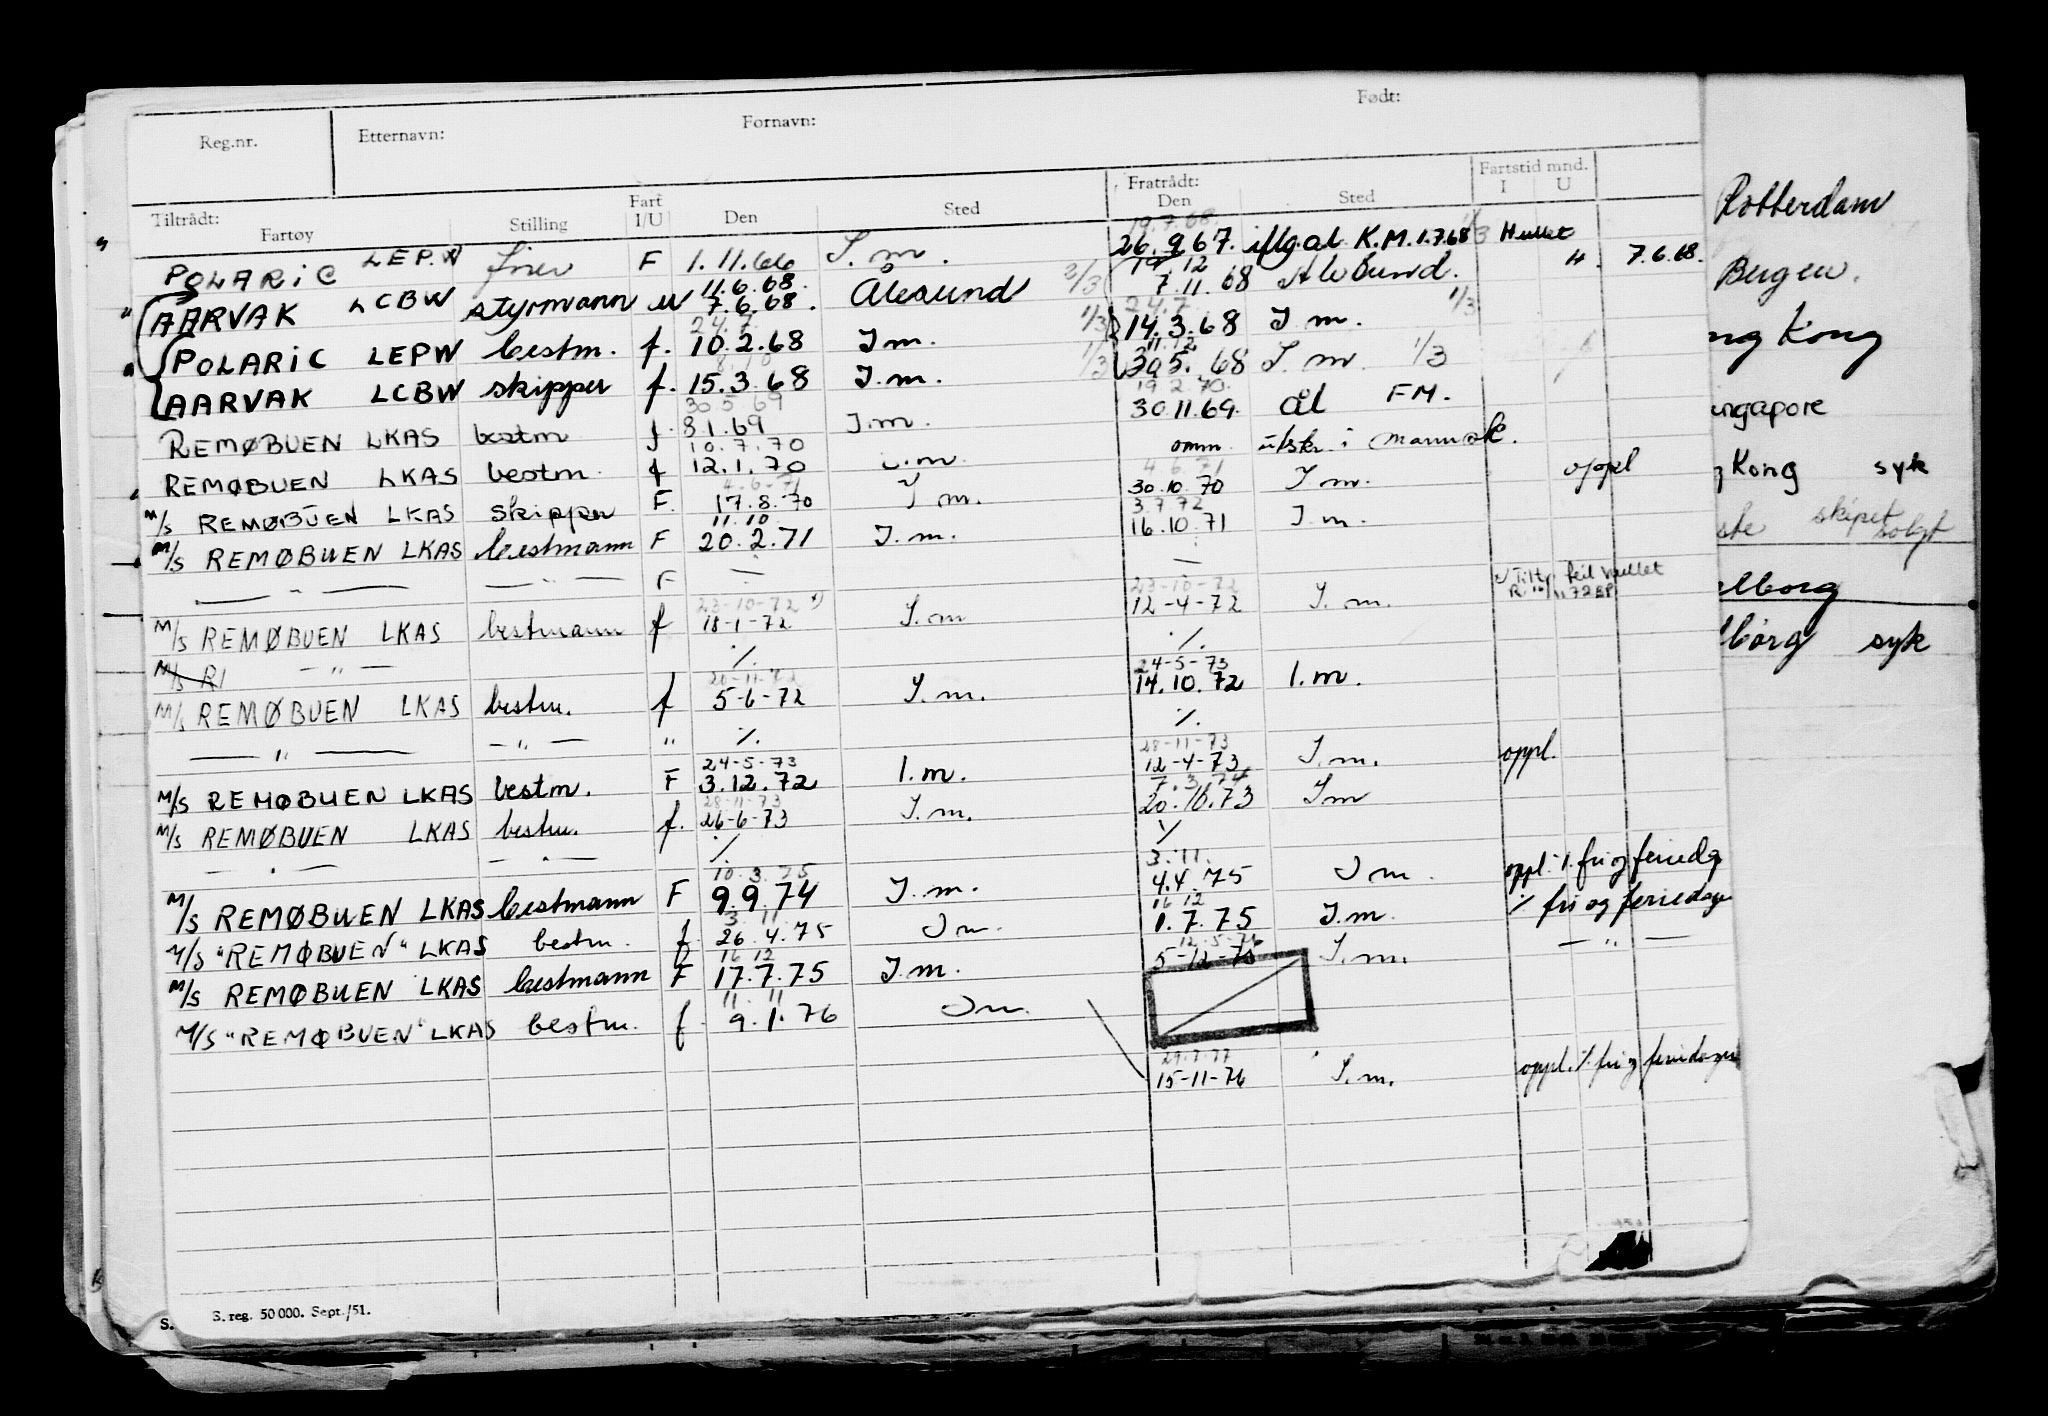 Reg.nr. Etternavn: Fornavn: Født:
Tiltrådt: Fratrådt: Fartstid mnd.
Fartøy Stilling Fart I/U Den Sted Den Sted I U
19.7.68.
POLARIC LEPW F 1.11.66 I.m. 26.9.67. iflg. al K.M. 1.7.68 1/3 Hullet
11.6.68. 19 12 H. 7.6.68.
" AARVAK LCBW styrmann u 7.6.68. Ålesund 2/3 7.11.68 Ålesund.
24.7. 24.7 1/3
" POLARIC LEPW bestm. f. 10.2.68 I m. 1/3 14.3.68 I m.
8.10 11.12
AARVAK LCBW skipper f. 15.3.68 I.m. 1/3 30.5.68 I.m. 1/3
30 5 69 19 2 70.
REMØBUEN LKAS bestm f. 8.1.69 I.m. 30.11.69. ål FM.
10.7.70
REMØBUEN LKAS bestm. f 12.1.70 I.m. omm. utskr. i mannsk.
4.6.71 4.6.71
M/S REMØBUEN LKAS skipper F. 17.8.70 I m. 30.10.70 I m. oppl
11.10 3.7.72
M/S REMØBUEN LKAS bestmann F 20.2.71 I.m. 16.10.71 I.m.
— " — F — —
23-10-72 23-10-72
M/S REMØBUEN LKAS bestmann f 18-1-72 I.m 12-4-72 I.m.
M/S R — " — ·/. ·/.
24-5-73
M/S REMØBUEN LKAS bestm. f 5-6-72 I.m. 14.10.72 I.m.
— " — — " — " ·/. ·/.
24-5-73 28-11-73
M/S REMØBUEN LKAS bestm. F 3.12.72 I.m. 12-4-73 I.m. oppl.
28-11-73 7.3.74
M/S REMØBUEN LKAS bestm. f. 26-6-73 I.m. 20.10.73 I m
— " — — " — ·/. ·/.
10.3.75 3.11.
M/S REMØBUEN LKAS bestmann F 9.9.74 I.m. 4.4.75 I m. oppl. ·/. fri og feriedg
3 11 16 12
M/S "REMØBUEN" LKAS bestm. f. 26.4.75 I m. 1.7.75 I.m. ·/. fri og feriedage
16 12 12.5.76
M/S REMØBUEN LKAS bestmann F 17.7.75 I.m. 5-12-75 I.m. — " —
11. 11
M/S "REMØBUEN" LKAS bestm. f. 9.1.76 I m.
29.7.77
15-11-76 I.m. oppl. ·/. fri og feriedager
S. reg. 50 000. Sept./51.
S.
Rotterdam
Bergen.
ng Kong
ingapore
Kong syk
ste skipet solgt
lborg
lborg syk